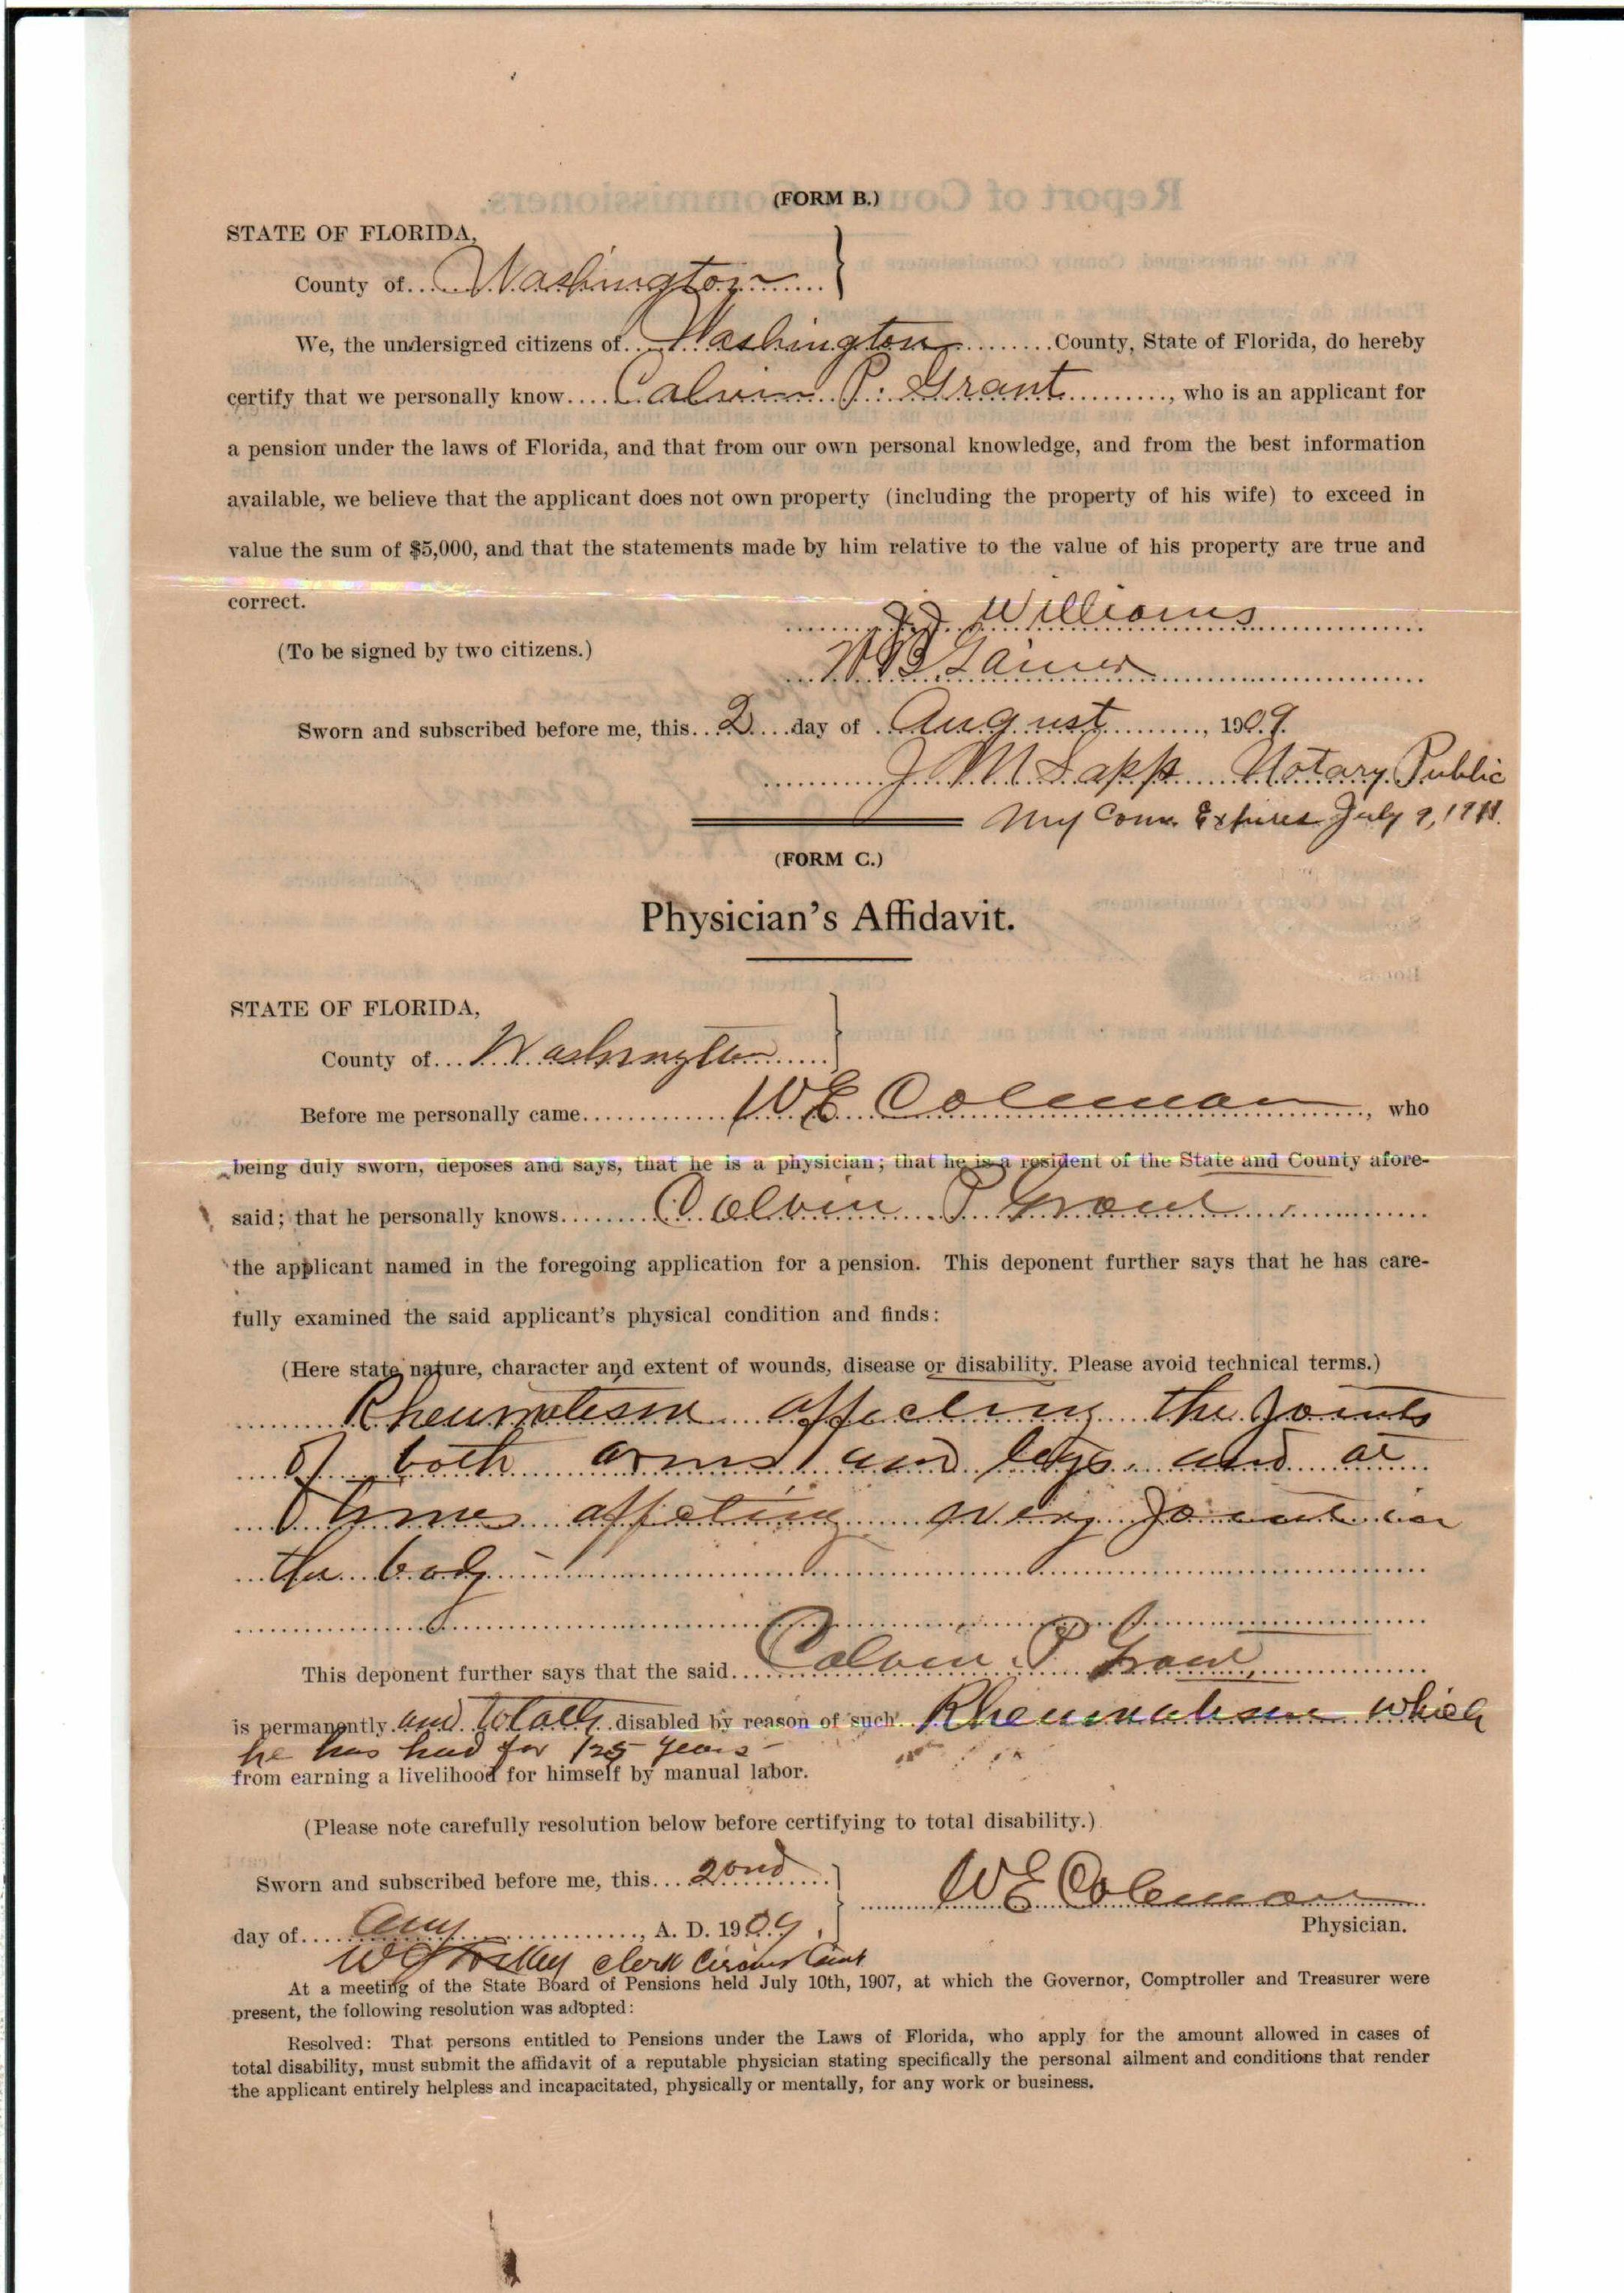 (FORM B.)
STATE OF FLORIDA,
County of Washington
We, the undersigned citizens of Washington County, State of Florida, do hereby
certify that we personally know Calvin P. Grant, who is an applicant for
a pension under the laws of Florida, and that from our own personal knowledge, and from the best information
available, we believe that the applicant does not own property (including the property of his wife) to exceed in
value the sum of $5,000, and that the statements made by him relative to the value of his property are true and
correct.
Williams
(To be signed by two citizens.)
W B Gainer
Sworn and subscribed before me, this 2 day of August, 1909.
J M Sapp Notary Public
My Com. Expires July 9, 1911.
(FORM C.)
Physician's Affidavit.
STATE OF FLORIDA,
County of Washington
Before me personally came W E Coleman, who
being duly sworn, deposes and says, that he is a physician; that he is a resident of the State and County afore-
said; that he personally knows Calvin P Grant
the applicant named in the foregoing application for a pension. This deponent further says that he has care-
fully examined the said applicant's physical condition and finds:
(Here state nature, character and extent of wounds, disease or disability. Please avoid technical terms.)
Rheumatism affecting the Joints
of both arms and legs and at
times affeting every Joint in
the body
This deponent further says that the said Calvin P Grant
is permanently and totally disabled by reason of such Rheumatism which
he has had for years
from earning a livelihood for himself by manual labor.
(Please note carefully resolution below before certifying to total disability.)
Sworn and subscribed before me, this 2ond
W E Coleman
Physician.
day of Aug, A. D. 1909.
Clerk Circuit Court
At a meeting of the State Board of Pensions held July 10th, 1907, at which the Governor, Comptroller and Treasurer were
present, the following resolution was adopted:
Resolved: That persons entitled to Pensions under the Laws of Florida, who apply for the amount allowed in cases of
total disability, must submit the affidavit of a reputable physician stating specifically the personal ailment and conditions that render
the applicant entirely helpless and incapacitated, physically or mentally, for any work or business.